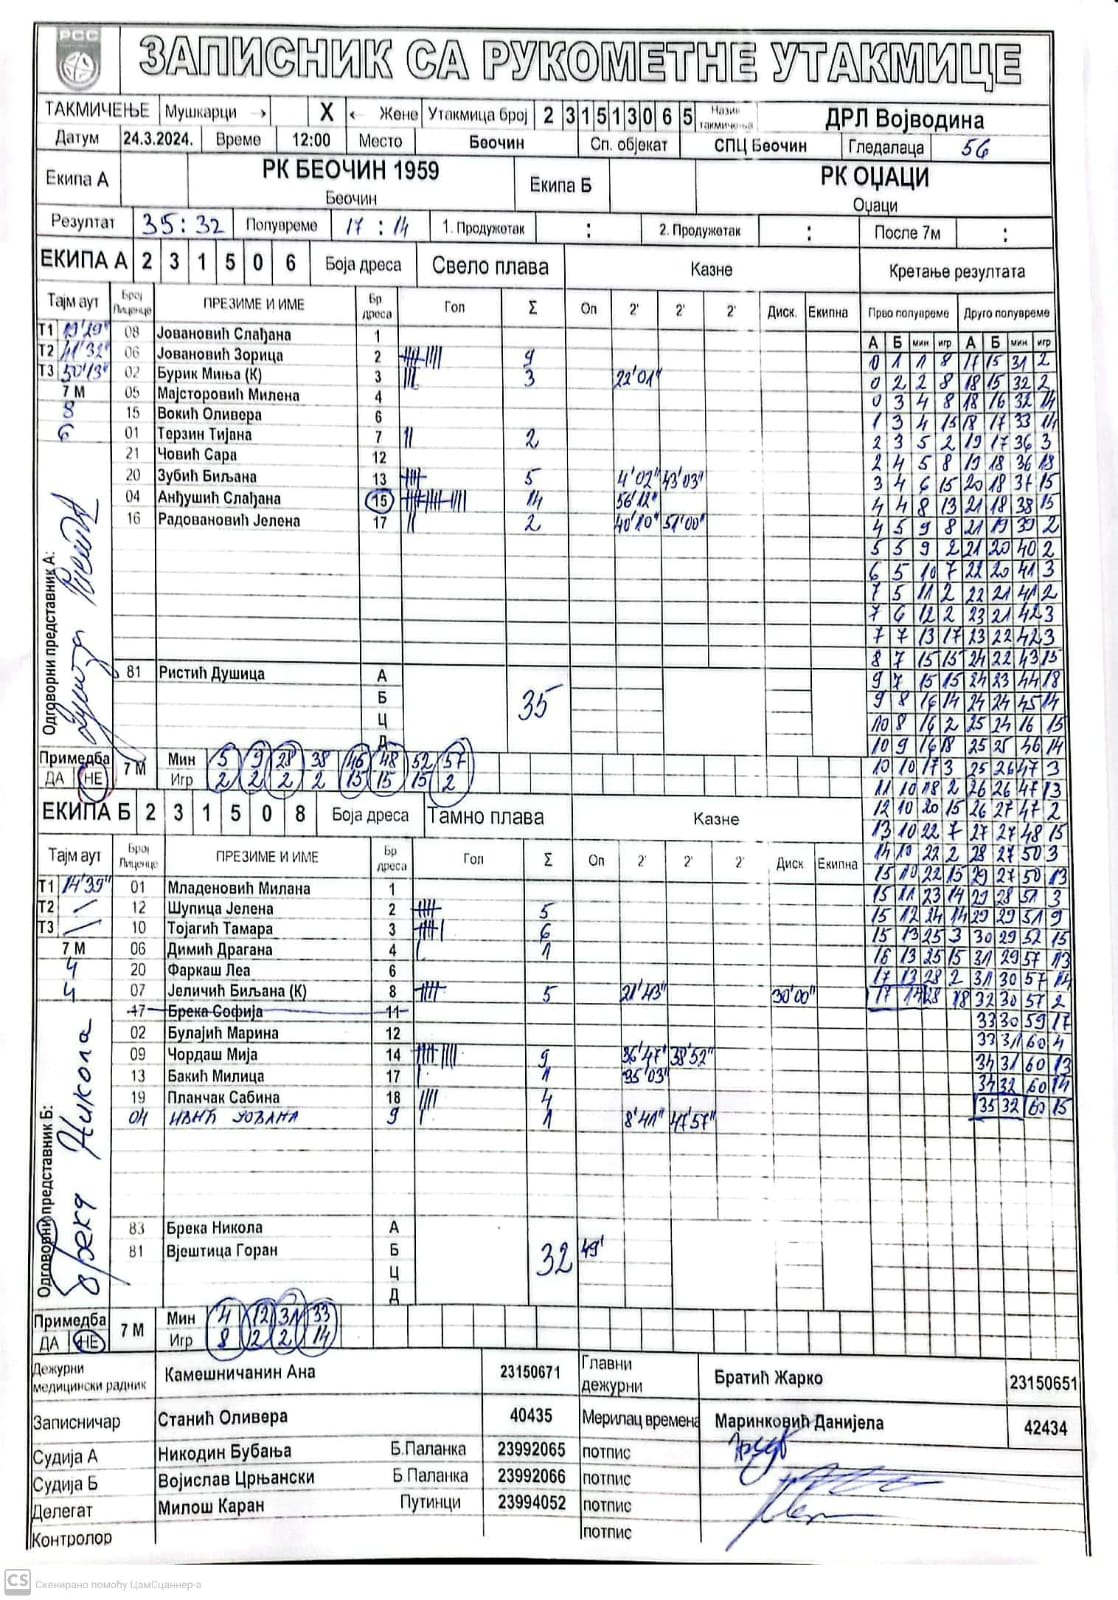 РСС
ЗАПИСНИК СА РУКОМЕТНЕ УТАКМИЦЕ
ТАКМИЧЕЊЕ Мушкарци → X ← Жене Утакмица број 2 3 1 5 1 3 0 6 5 Назив такмичења ДРЛ Војводина
Датум 24.3.2024. Време 12:00 Место Беочин Сп. објекат СПЦ Беочин Гледалаца 56
Екипа А РК БЕОЧИН 1959 Екипа Б РК ОЏАЦИ
Беочин Оџаци
Резултат 35:32 Полувреме 17:14 1. Продужетак : 2. Продужетак : После 7м :
ЕКИПА А 2 3 1 5 0 6 Боја дреса Свело плава Казне Кретање резултата
Тајм аут Број Лиценце ПРЕЗИМЕ И ИМЕ Бр дреса Гол Σ Оп 2' 2' 2' Диск. Екипа Прво полувреме Друго полувреме
А Б мин игр А Б мин игр
Т1 19'29" 08 Јовановић Слађана 1
Т2 41'32" 06 Јовановић Зорица 2 9
Т3 50'13" 02 Бурик Миња (К) 3 3 22'01"
7 М 05 Мајсторовић Милена 4
8 15 Вокић Оливера 6
6 01 Терзин Тијана 7 2
21 Човић Сара 12
20 Зубић Биљана 13 5 4'02" 43'03"
04 Анђушић Слађана 15 14 56'12"
16 Радовановић Јелена 17 2 40'10" 51'00"
Одговорни представник А:
81 Ристић Душица А
Б 35
Ц
Д
Примедба 7 М Мин 5 9 28 38 46 48 52 57
ДА НЕ Игр 2 2 2 2 15 15 15 2
0 1 1 8 17 15 31 2
0 2 2 8 18 15 32 2
0 3 4 8 18 16 32 14
1 3 4 15 18 17 33 14
2 3 5 2 19 17 36 3
2 4 5 8 19 18 36 18
3 4 6 15 20 18 37 15
4 4 8 13 21 18 38 15
4 5 9 8 21 19 39 2
5 5 9 2 21 20 40 2
6 5 10 7 22 20 41 3
7 5 11 2 22 21 41 2
7 6 12 2 23 21 42 3
7 7 13 17 23 22 42 3
8 7 15 15 24 22 43 15
9 7 15 15 24 23 44 18
9 8 16 14 24 24 45 14
10 8 16 2 25 24 16 15
10 9 16 18 25 25 46 14
10 10 17 3 25 26 47 3
11 10 18 2 26 26 47 13
12 10 20 15 26 27 47 2
13 10 22 7 27 27 48 15
14 10 22 2 28 27 50 3
15 10 22 15 29 27 50 13
15 11 23 14 29 28 51 3
15 12 24 14 29 29 51 9
15 13 25 3 30 29 52 15
16 13 25 15 31 29 57 13
17 13 28 2 31 30 57 14
17 14 28 18 32 30 57 2
33 30 59 17
33 31 60 4
34 31 60 13
34 32 60 14
35 32 60 15
ЕКИПА Б 2 3 1 5 0 8 Боја дреса Тамно плава Казне
Тајм аут Број Лиценце ПРЕЗИМЕ И ИМЕ Бр дреса Гол Σ Оп 2' 2' 2' Диск Екипна
Т1 14'39" 01 Младеновић Милана 1
Т2 12 Шупица Јелена 2 5
Т3 10 Тојагић Тамара 3 6
7 М 06 Димић Драгана 4 1
4 20 Фаркаш Леа 6
4 07 Јеличић Биљана (К) 8 5 21'43" 30'00"
47 Брека Софија 11
02 Булајић Марина 12
09 Чордаш Мија 14 9 36'47" 38'52"
13 Бакић Милица 17 1 35'03"
19 Планчак Сабина 18 4
04 ИВИЋ ЈОВАНА 9 1 8'41" 47'57"
Одговорни представник Б: Брека Никола
83 Брека Никола А
81 Вјештица Горан Б 32 49'
Ц
Д
Примедба 7 М Мин 4 12 31 33
ДА НЕ Игр 8 2 2 14
Дежурни медицински радник Камешничанин Ана 23150671 Главни дежурни Братић Жарко 23150651
Записничар Станић Оливера 40435 Мерилац времена Маринковић Данијела 42434
Судија А Никодин Бубања Б.Паланка 23992065 потпис
Судија Б Војислав Црњански Б.Паланка 23992066 потпис
Делегат Милош Каран Путинци 23994052 потпис
Контролор потпис
CS Скенирано помоћу ЦамСцаннер-а